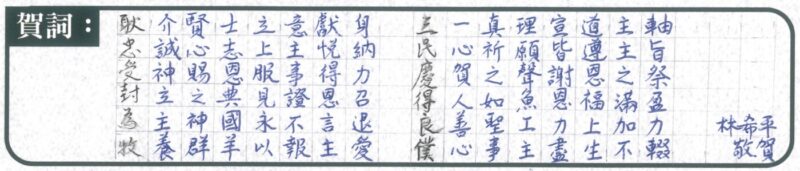 賀詞：
耿介賢士立意獻身
忠誠心志上主悅納
受神賜恩服事得力
封立之典見證恩召
為主神國永不言退
牧養群羊以報主愛
三一真理宣道主軸
民心祈願皆遵主旨
慶賀之聲謝恩之祭
得人如魚恩福滿盈
良善聖工力上加力
僕心事主盡生不輟
林希平
敬賀